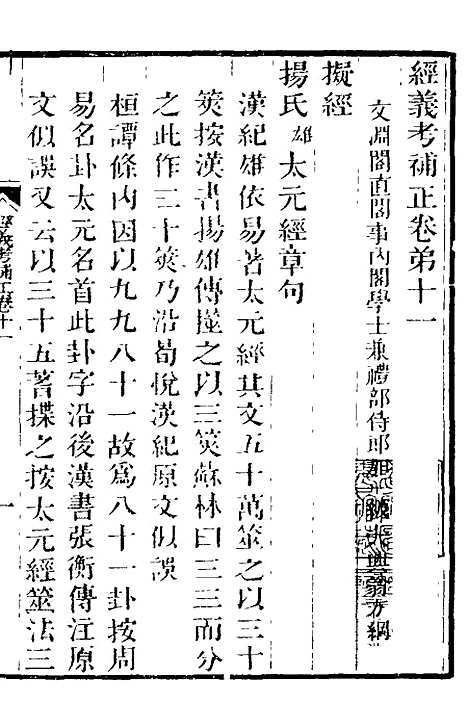 經義考補正卷弟十一
文淵閣直閣事內閣學士兼禮部侍郎 翁方綱
擬經
揚氏雄太元經章句
漢紀雄依易著太元經其文五十萬筮之以三十
筴按漢書揚雄傳㨽之以三筴蘇林曰三三而分
之此作三十筴乃沿荀悅漢紀原文似誤
桓譚條內因以九九八十一故為八十一卦按周
易名卦太元名首此卦字沿後漢書張衡傳注原
文似誤又去以三十五蓍揲之按太元經筮法三
經義考補正卷十一
一